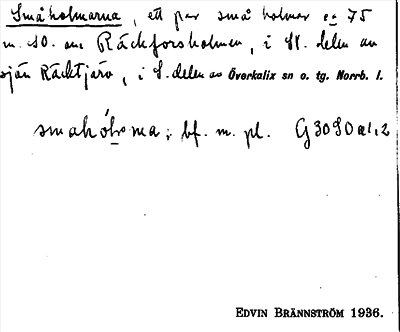 Småholmarna, ett par små holmar ca 75
m. SO. om Räckforsholmen, i N. delen av
sjön Räcktjärv, i S. delen av Överkalix sn o. tg. Norrb. l.
bf. m. pl. G3090a1.2
EDVIN BRÄNNSTRÖM 1936.